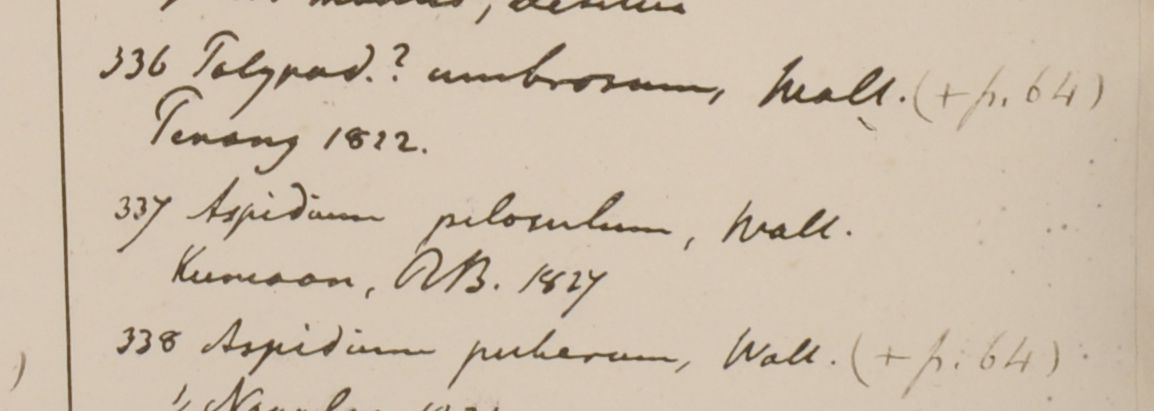 336 Polypod.? umbrosum, Wall. (+ p. 64)
Penang 1822.
337 Aspidium pilosulum, Wall.
Kumaon, RB. 1827
338 Aspidium puberum, Wall. (+ p. 64)